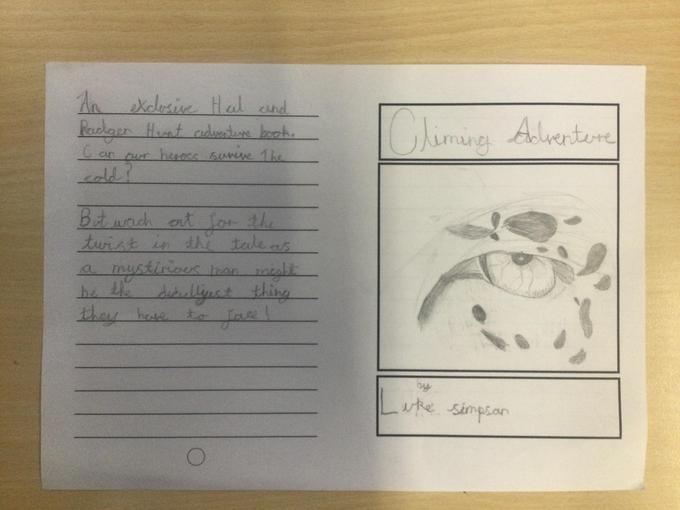 An exclusive Hal and
Radger Hunt adventure book.
Can our heroes survive The
cold?
But wach out for the
twist in the tale as
a mystirious man might
be the thing
they have to face!
Climing Adventure
by
Luke simpson